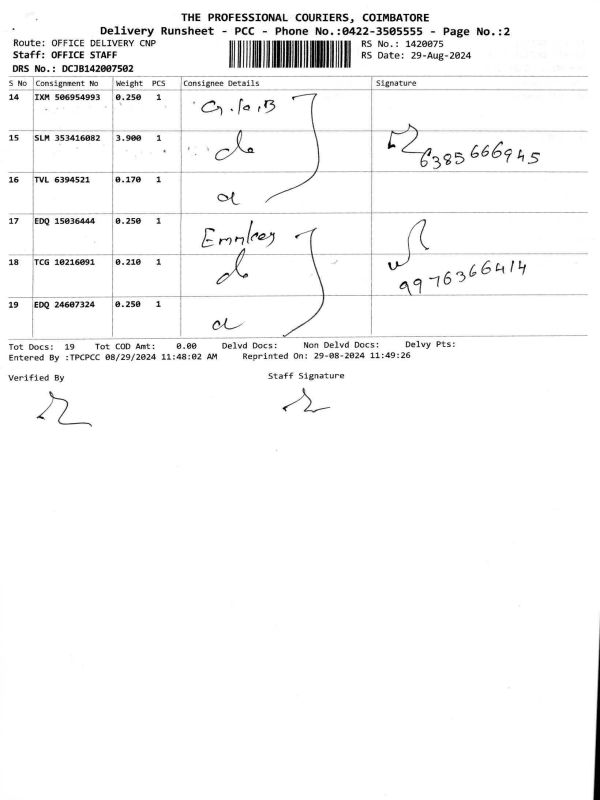 THE PROFESSIONAL COURIERS, COIMBATORE
Delivery Runsheet - PCC - Phone No.:0422-3505555 - Page No.:2
Route: OFFICE DELIVERY CNP RS No.: 1420075
Staff: OFFICE STAFF RS Date: 29-Aug-2024
DRS No.: DCJB142007502
S No Consignment No Weight PCS Consignee Details Signature
14 IXM 506954993 0.250 1
15 SLM 353416082 3.900 1 do 6385666945
16 TVL 6394521 0.170 1
17 EDQ 15036444 0.250 1
18 TCG 10216091 0.210 1 do 9976366414
19 EDQ 24607324 0.250 1
Tot Docs: 19 Tot COD Amt: 0.00 Delvd Docs: Non Delvd Docs: Delvy Pts:
Entered By :TPCPCC 08/29/2024 11:48:02 AM Reprinted On: 29-08-2024 11:49:26
Verified By Staff Signature